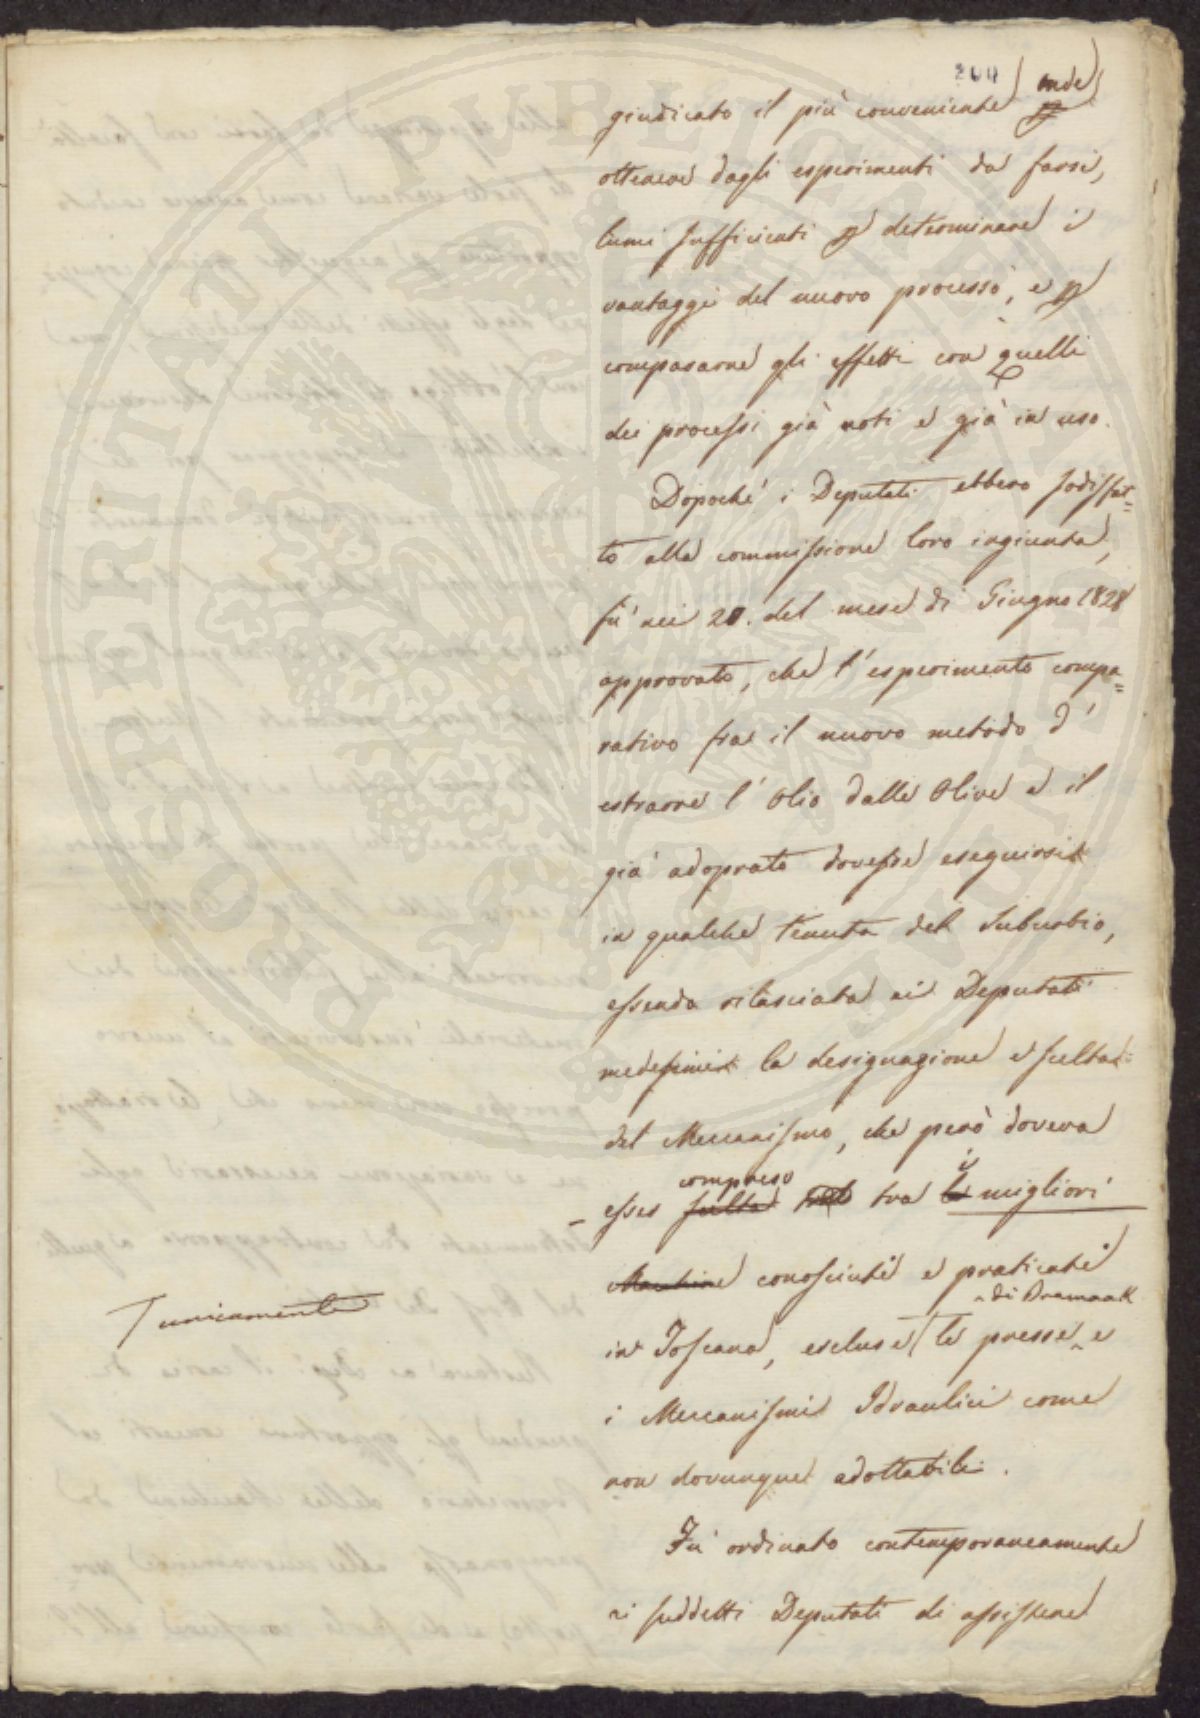 204
giudicato il più conveniente onde
ottenere dagli esperimenti da farsi,
lumi sufficienti p determinare i
vantaggi del nuovo processo, e p
comparare gli effetti con quelli
dei processi già noti e già in uso.
Dopochè i Deputati ebbero sodisfat=
to alla commissione loro ingiunta,
fù nei 20. del mese di Giugno 1828
approvato, che l'esperimento compa=
rativo fra il nuovo metodo d'
estrarre l'Olio dalle Olive e il
già adoprato dovesse eseguirsi
in qualche tenuta del Suburbio,
essendo rilasciata ai Deputati
medesimi la designazione e scelta
del Meccanismo, che però doveva
compreso
esser scelto tra i migliori
Macchine conosciuti e praticati
di Bramack
in Toscana, escluse le presse e
unicamente
i Meccanismi Idraulici come
non dovunque adottabili.
Fù ordinato contemporaneamente
ai suddetti Deputati di assistere
PROSPERITATI PUBLICAE AUGENDAE